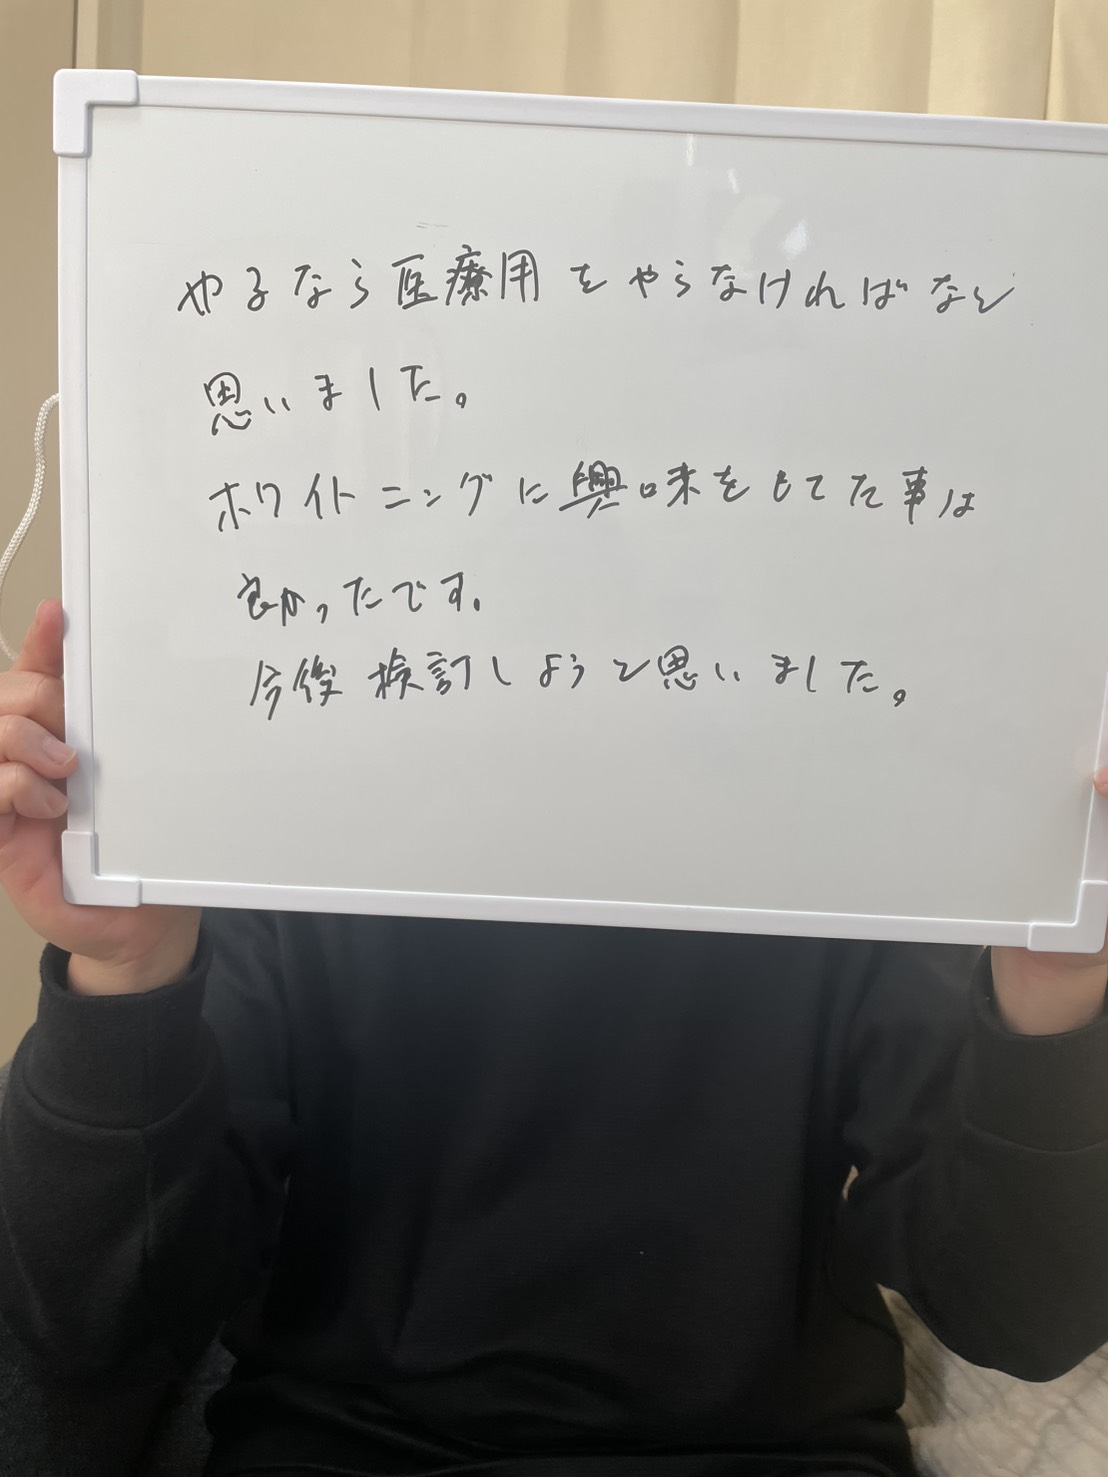 やるなら医療用をやらなければなと
思いました。
ホワイトニングに興味をもてた事は
良かったです。
今後検討しようと思いました。